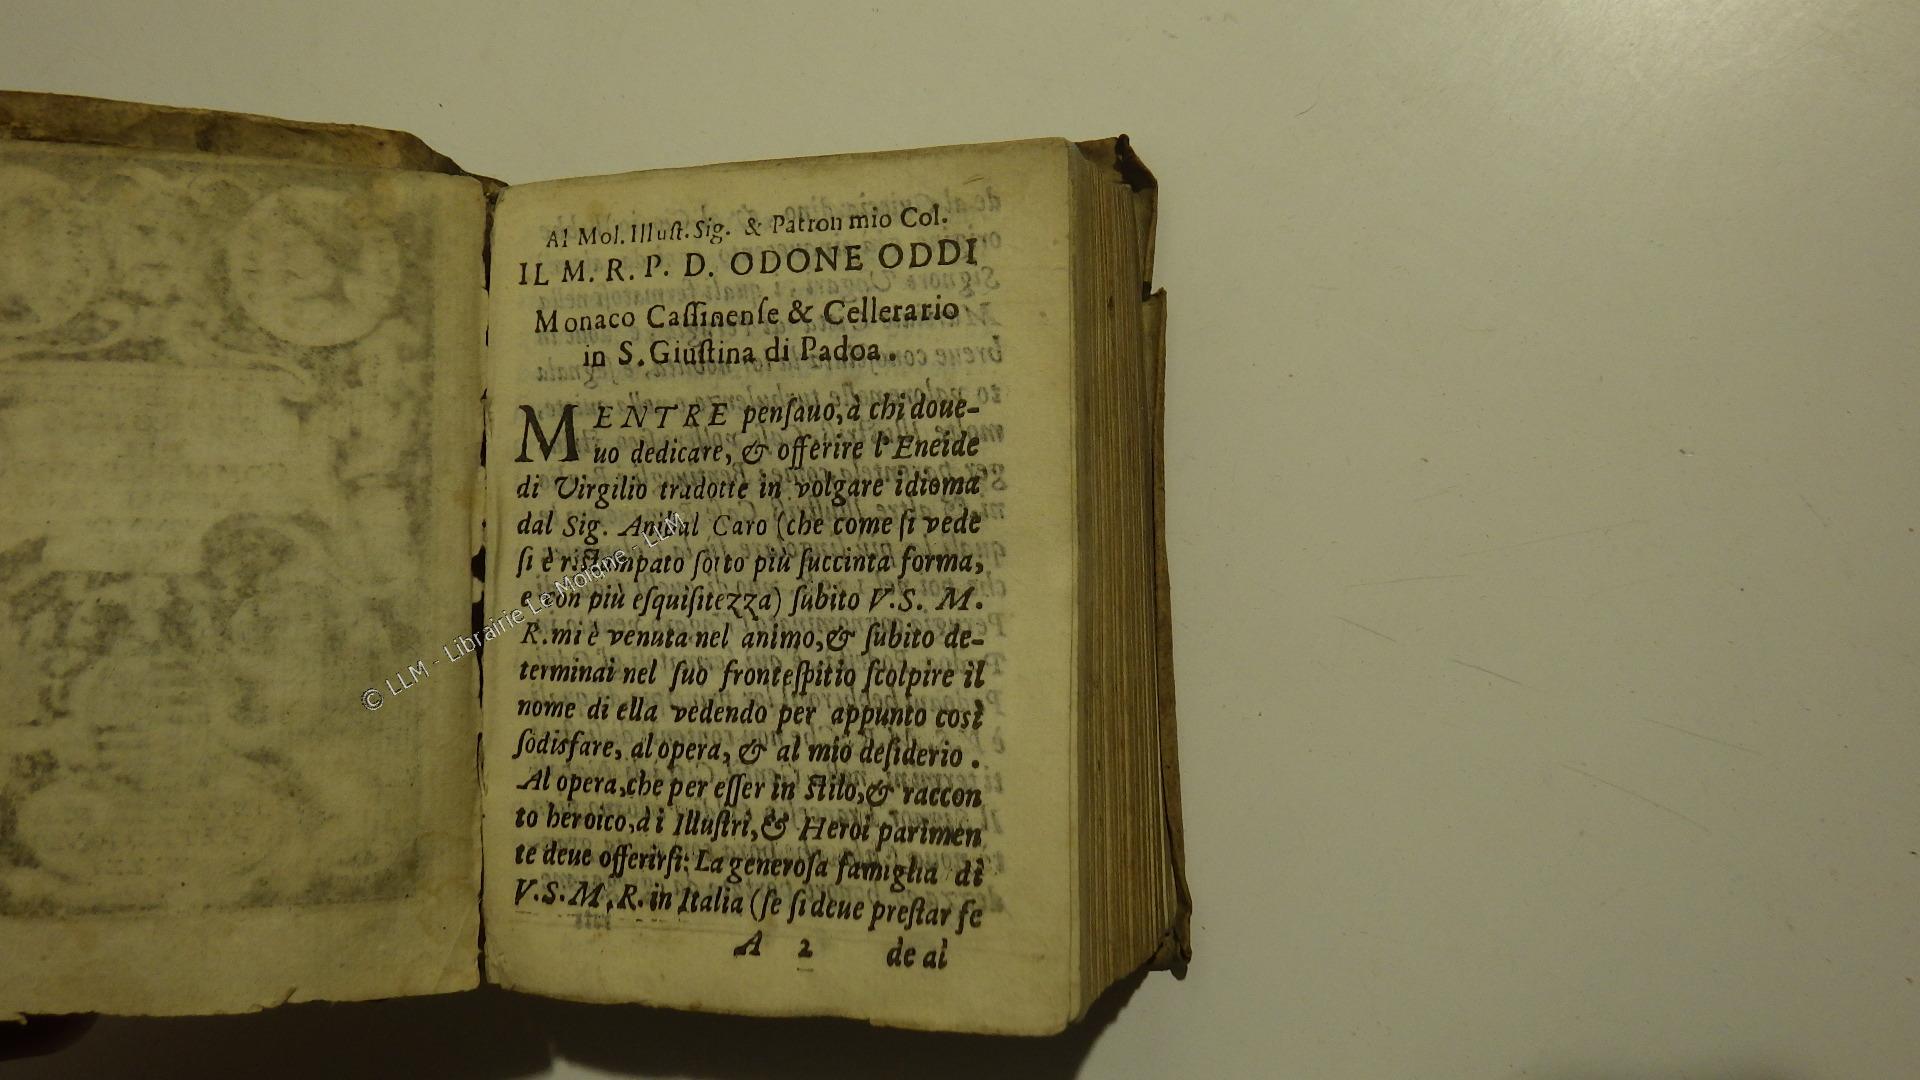 Al Mol. Illuſt. Sig. & Patron mio Col.
IL M. R. P. D. ODONE ODDI
Monaco Caſſinenſe & Cellerario
in S. Giuſtina di Padoa.
MENTRE penſauo, à chi doue-
uo dedicare, & offerire l'Eneide
di Virgilio tradotte in volgare idioma
dal Sig. Anibal Caro (che come ſi vede
ſi è riſtampato ſotto più ſuccinta forma,
e con più eſquiſitezza) ſubito V.S. M.
R. mi è venuta nel animo, & ſubito de-
terminai nel ſuo fronteſpitio ſcolpire il
nome di ella vedendo per appunto così
ſodisfare, al opera, & al mio deſiderio.
Al opera, che per eſſer in ſtilo, & raccon
to heroico, di Illuſtri, & Heroi parimen
te deue offerirſi: La generoſa famiglia di
V.S.M.R. in Italia (ſe ſi deue preſtar fe
A 2 de al
© LLM - Librairie Le Moldne - LLM